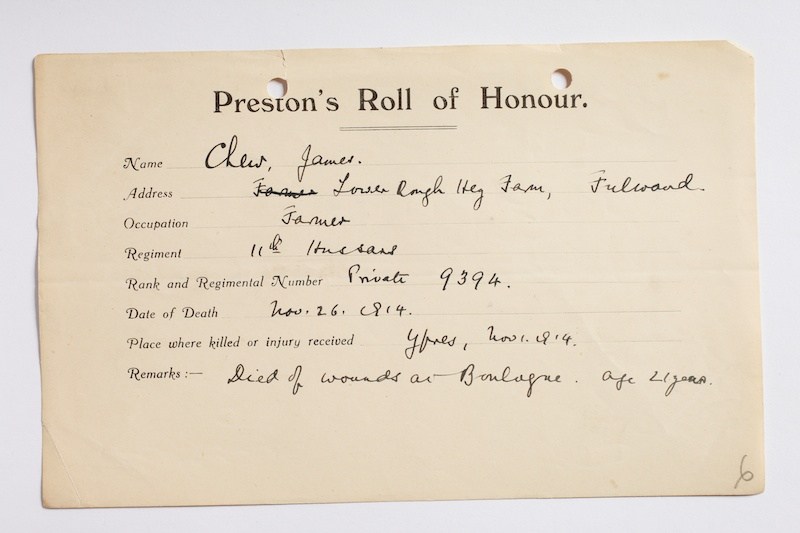 Preston's Roll of Honour.
Name Chew, James.
Address Farmer Lower Rough Hey Farm, Fulwood
Occupation Farmer
Regiment 11th Hussars
Rank and Regimental Number Private 9394.
Date of Death Nov. 26. 1914.
Place where killed or injury received Ypres, Nov 1. 1914.
Remarks:— Died of wounds at Boulogne. age 21 years.
6